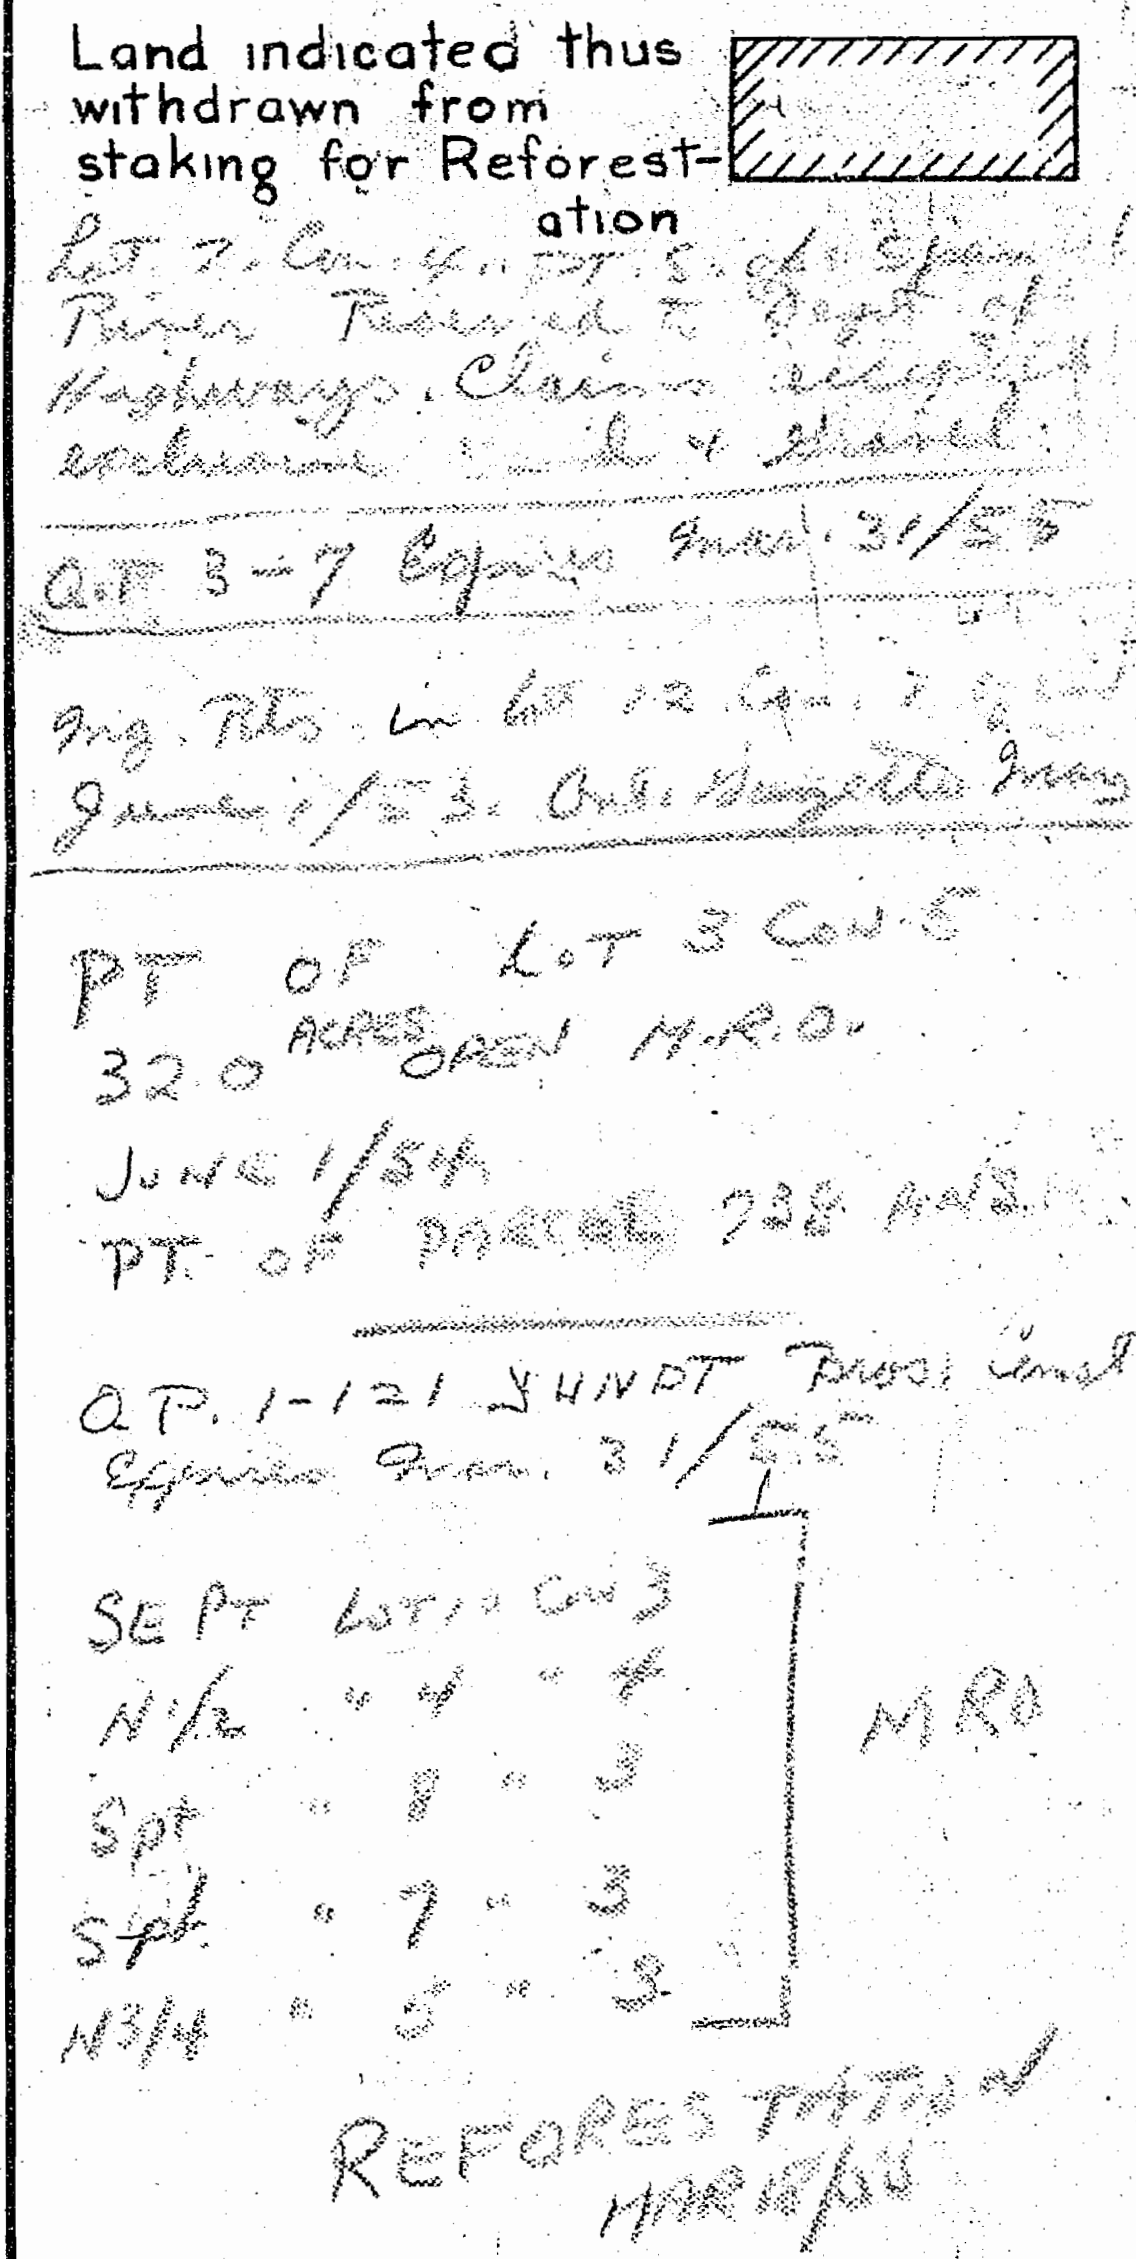 Land indicated thus
withdrawn from
staking for Reforest-
ation
Lot. 7. Con. 4. PT. S. of Spanish
River Reserved to Dept of
Highways. Claims accepted
exclusive sand & gravel.
O.P 3-7 Expires Mar. 31/55
Mg. Rts. in Lot 12 Con.
June 1/53. Ont. Gazette May
PT OF LOT 3 CON 5
320 ACRES OPEN M.R.O.
JUNE 1/54
PT. OF PARCEL 738
O.P. 1-121
Expires Mar. 31/55
SE PT LOT 10 CON 3
N1/2 " 4 " 4
MRO
S pt " 8 " 3
S pt " 7 " 3
N3/4 " 5 " 3
REFORESTATION
MAR